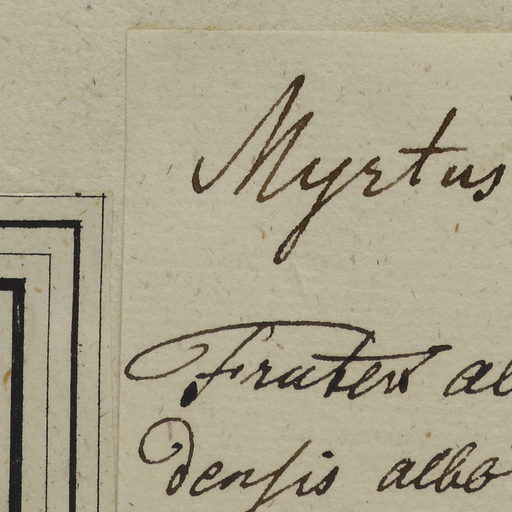 Myrtus
Frutex al
densis albo